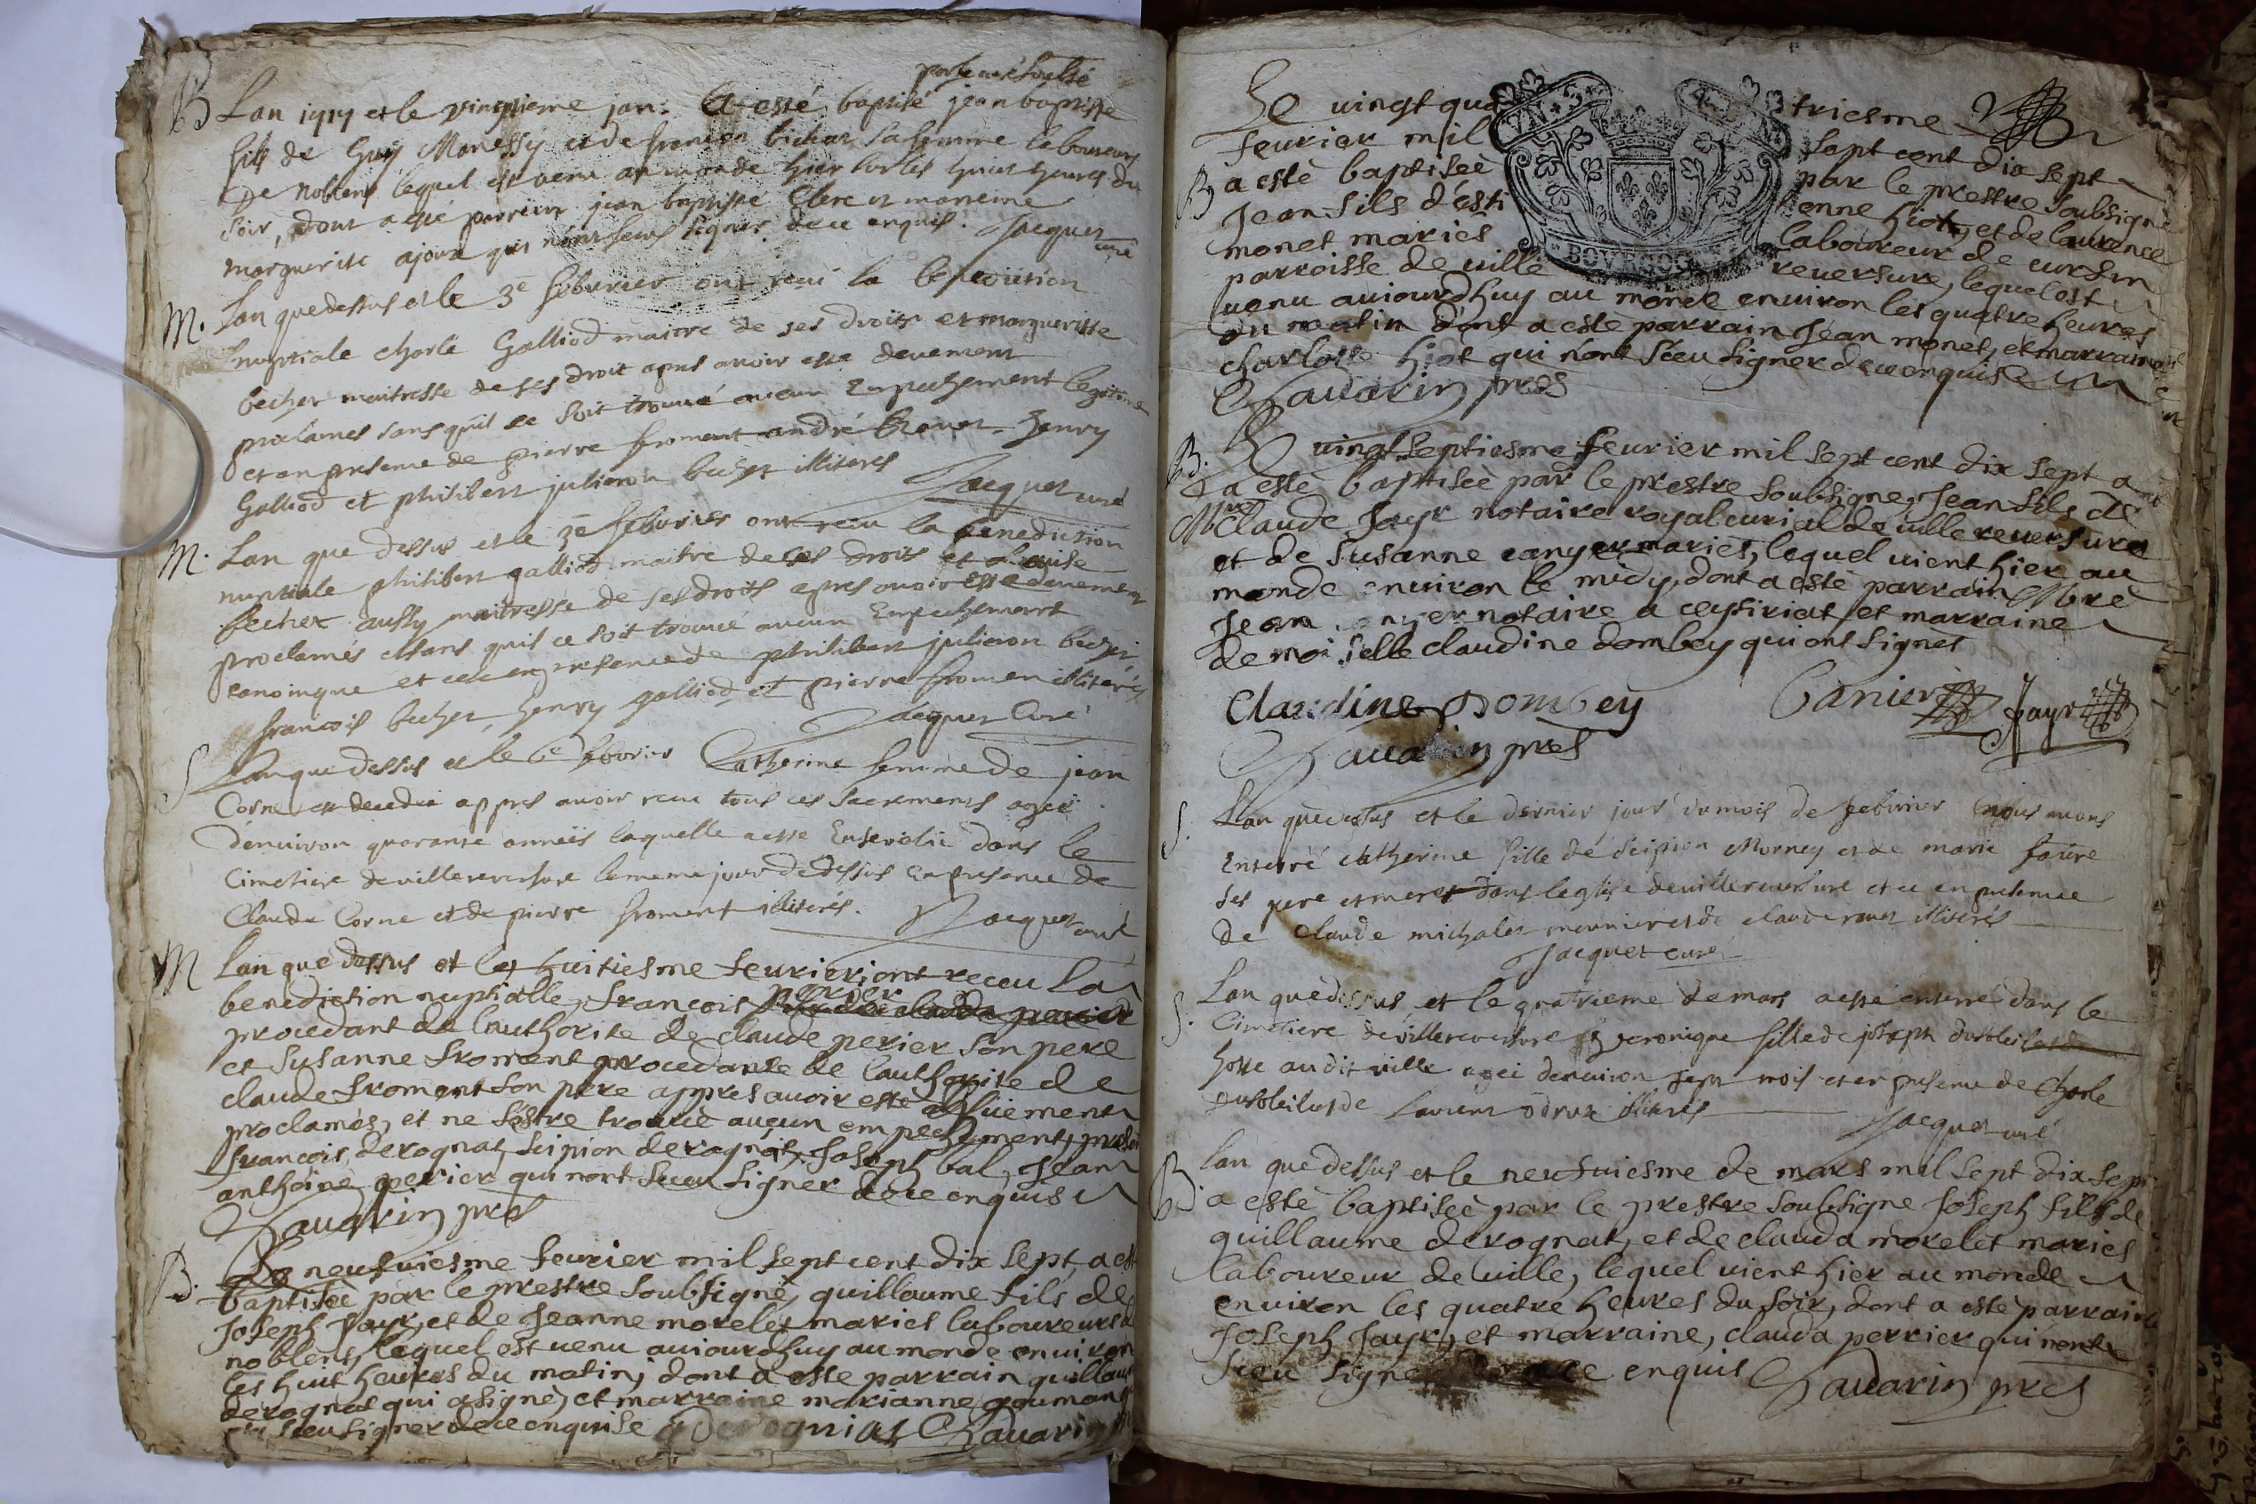 B Lan 1717 et le vingtieme jan: a esté baptisé jean baptiste
fils de Guy Manessy et de sa femme laboureurs
de noblens lequel est venu au monde hier sur les huict heures du
soir, dont a esté parrein jean baptiste Clerc et marreine
marguerite qui n'ont sceus signer de ce enquis. Jacquet curé
M. Lan que dessus et le 3e febvrier ont receu la benediction
nuptiale charle Galliod maitre de ses droits et marguerisse
becher maitresse de ses droit apres avoir esté devement
proclames sans qu'il se soit trouvé aucun empechement legitime
et en presence de pierre froment andré henry
Galliod et philibert julieron becher illiteres Jacquet curé
M. Lan que dessus et le 3e febvrier ont receu la benediction
nuptiale philibert galliod maitre de ses droits et Louise
becher aussy maitresse de ses droits apres avoir esté devement
proclames et sans quil ce soit trouvé aucun empechement
canonique et ce en presence de philibert julieron becher
francois becher, henry galliod, et pierre fromen illiterés
Jacquet Curé
S Lan que dessus et le 6e febvrier Catherine femme de jean
Corne est decedée appres avoir receu tous ces sacrements agée
d'environ quarante années laquelle a esté ensevelie dans le
cimetiere de villereversure le meme jour de dessus en presence de
Claude Corne et de pierre froment illiterés. Jacquet curé
M Lan que dessus et le huitiesme feurier iont receu la
benediction nuptialle, francois perier
procedant de lauthorite de claude perier son pere
et Susanne froment procedante de lauthorite de
claude froment son pere appres avoir esté
proclamés, et ne s'estre trouvé aucun empechement, presen
francois derognat, scipion derognat, Joseph bal, Jean
anthoine perier qui nont sceu signer de ce enquis
Chavarin pres
B. Le neufuiesme feurier mil sept cent dix sept a est
baptiseè par le prestre soubsigné, guillaume fils de
Joseph Jayr, et de Jeanne morelet maries laboureurs d
noblens, lequel est venu auiourdhuy au monde environ
les huit heures du matin, dont a esté parrain guillaum
derognat qui asigne, et marraine marianne goumand
sceu signer de ce enquise g derognias Chavarin
Le vingt qua triesme
feurier mil sapt cent dix sept
B a esté baptiseè par le prestre soubsigné
Jean fils d'esti enne hiot, et de laurence
monet mariés laboureur de cursin
parroisse de ville reversure, lequel est
venu auiourdhuy au monde environ les quatre heures
du matin dont a esté parrain Jean monet, et marraine
charlotte hiot qui n'ont sceu signer de ce enquise
Chavarin pres
B. Le vingt septiesme feurier mil sept cent dix sept a
a esté baptiseè par le prestre soubsigne, Jean fils de
Mre Claude Jayr notaire royal curial de ville reversure
et de Susanne canyer mariés, lequel vient hier au
monde environ le midy, dont a esté parrain Mre
Jean notaire a ceysiriat, et marraine
demoiselle claudine dombey qui ont signes
Claudine Dombey Canier Jayr
Chavarin pres
S. Lan que dessus et le dernier jour du mois de febvrier nous avons
enterré catherine fille de scipion Morney et de marie faure
ses pere et mere dans leglise de villereversure et ce en presence
de Claude michalet meunier et de claude illiterés
Jacquet curé
S. Lan que dessus, et le quatrieme de mars a esté enterré dans le
cimetiere de villereversure veronique fille de joseph
hoste audit ville agée denviron sept mois et en presence de Charle
de Laurent illiterés
Jacquet curé
B. Lan que dessus et le neufuiesme de mars mil sept dix sept
a esté baptiseè par le prestre soubsigne Joseph fils de
guillaume derognat, et de clauda morelet maries
laboureur de ville, lequel vient hier au monde
environ les quatre heures du soir, dont a esté parrain
Joseph Jayr, et marraine, clauda perrier qui nont
sceu signe de ce enquis Chavarin pres
BOVRGOGNE